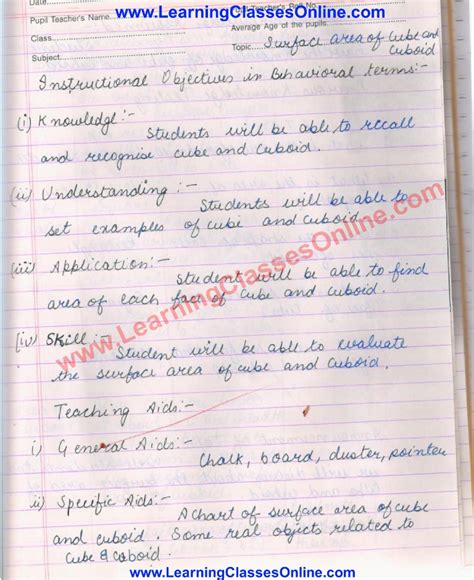 www.LearningClassesOnline.com
Pupil Teacher's Name
Pupil Teacher's Roll No
Class
Average Age of the pupils
Subject
Topic Surface area of Cube and
Cuboid
Instructional Objectives in Behavioral terms:-
(i) Knowledge:-
Students will be able to recall
and recognise cube and cuboid.
(ii) Understanding :-
Students will be able to
set examples of cube and cuboid.
(iii) Application:-
Student will be able to find
area of each face of cube and cuboid.
(iv) Skill:-
Student will be able to evaluate
the surface area of cube and cuboid.
www.LearningClassesOnline.com
Teaching Aids:-
i) General Aids:-
Chalk, board, duster, pointer
ii) Specific Aids:-
A chart of surface area of cube
and cuboid. Some real objects related to
cube & cuboid.
www.LearningClassesOnline.com